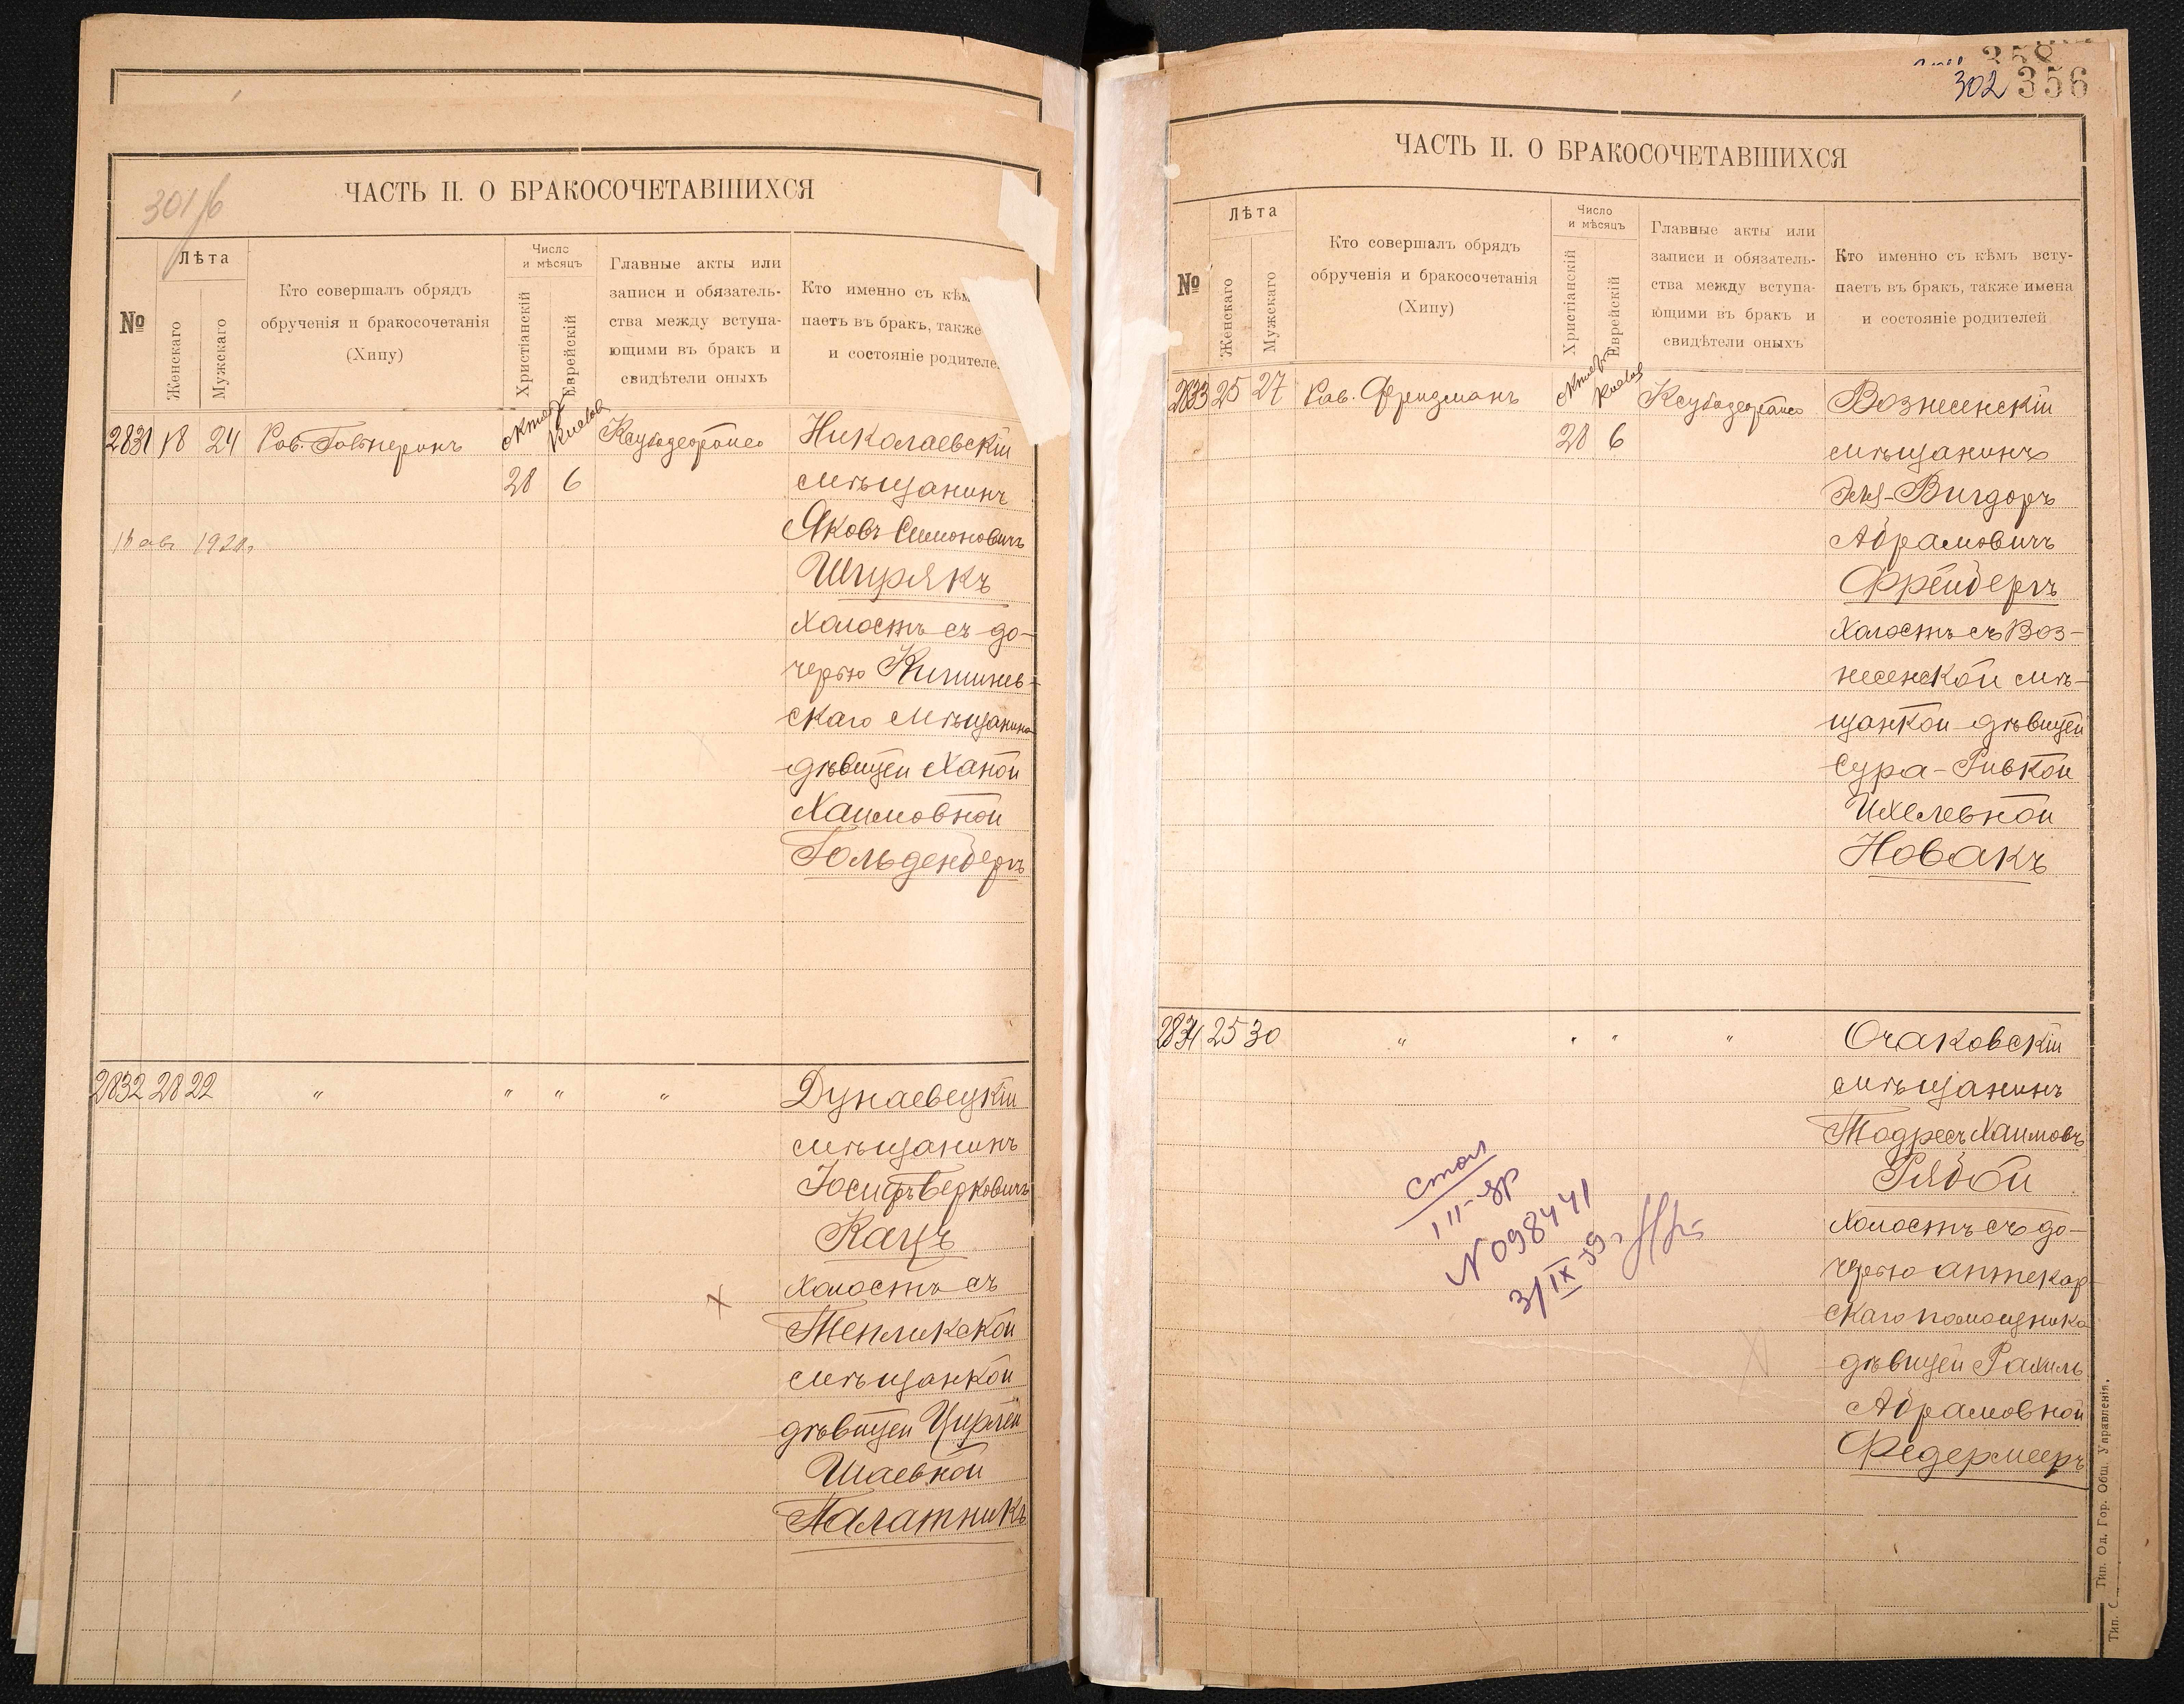 301/б
ЧАСТЬ II. О БРАКОСОЧЕТАВШИХСЯ
№
Лѣта
Женскаго
Мужскаго
Кто совершалъ обрядъ
обрученія и бракосочетанія
(Хипу)
Число
и мѣсяцъ
Христіанскій
Еврейскій
Главные акты или
записи и обязатель-
ства между вступа-
ющими въ бракъ и
свидѣтели оныхъ
Кто именно съ кѣм
паетъ въ бракъ, также
и состояніе родителе
2831 18 24 Рав.
28 6
Николаевскій
мѣщанинъ
Яковъ Симоновичъ
Шурякъ
холостъ съ до-
черью Кишинев-
скаго мѣщанина
дѣвицей Ханой
Хаимовной
Гольденбергъ
2832 28 22 " " " "
Дунаевецкій
мѣщанинъ
Іосифъ Берковичъ
Кацъ
холостъ съ
Тепликской
мѣщанкой
дѣвицей Цирлей
Шаевной
Палатникъ
302 356
ЧАСТЬ II. О БРАКОСОЧЕТАВШИХСЯ
№
Лѣта
Женскаго
Мужскаго
Кто совершалъ обрядъ
обрученія и бракосочетанія
(Хипу)
Число
и мѣсяцъ
Христіанскій
Еврейскій
Главные акты или
записи и обязатель-
ства между вступа-
ющими въ бракъ и
свидѣтели оныхъ
Кто именно съ кѣмъ всту-
паетъ въ бракъ, также имена
и состояніе родителей
2833 25 27 Рав. Фридманъ
28 6
Вознесенскій
мѣщанинъ
Вигдоръ
Абрамовичъ
Фрейбергъ
холостъ съ Воз-
несенской мѣ-
щанкой дѣвицей
Сура-Ривкой
Ихелевной
Новакъ
2834 25 30 " " " "
Очаковскій
мѣщанинъ
Тодресъ Хаимовъ
Рябой
холостъ съ до-
черью аптекар-
скаго помощника
дѣвицей Рахиль
Абрамовной
Федермееръ
N 098441
3/IX 39 г
Тип. Од. Гор. Общ. Управленія.